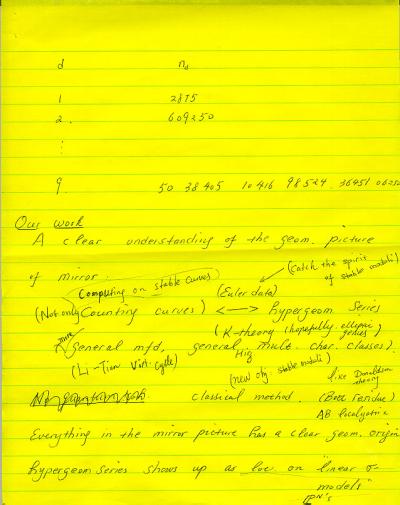 d nd
1 2875
2. 609250
9 50 38 405 10 416 98 524 36451 06250
Our work
A clear understanding of the geom. picture
of mirror.
(Catch the spirit
of stable moduli)
Computing on stable curves)
(Euler data)
(Not only Counting curves) <—> hypergeom Series
(K-theory (hopefully elliptic
genus)
more
General mfd, general mult. char. classes)
(Li-Tian Virt. Cycle)
(new obj. stable moduli)
like Donaldson
theory
classical method. (Bott residue)
AB localization
Everything in the mirror picture has a clear geom. origin
hypergeom series shows up as loc. on "linear σ-
models"
PN's